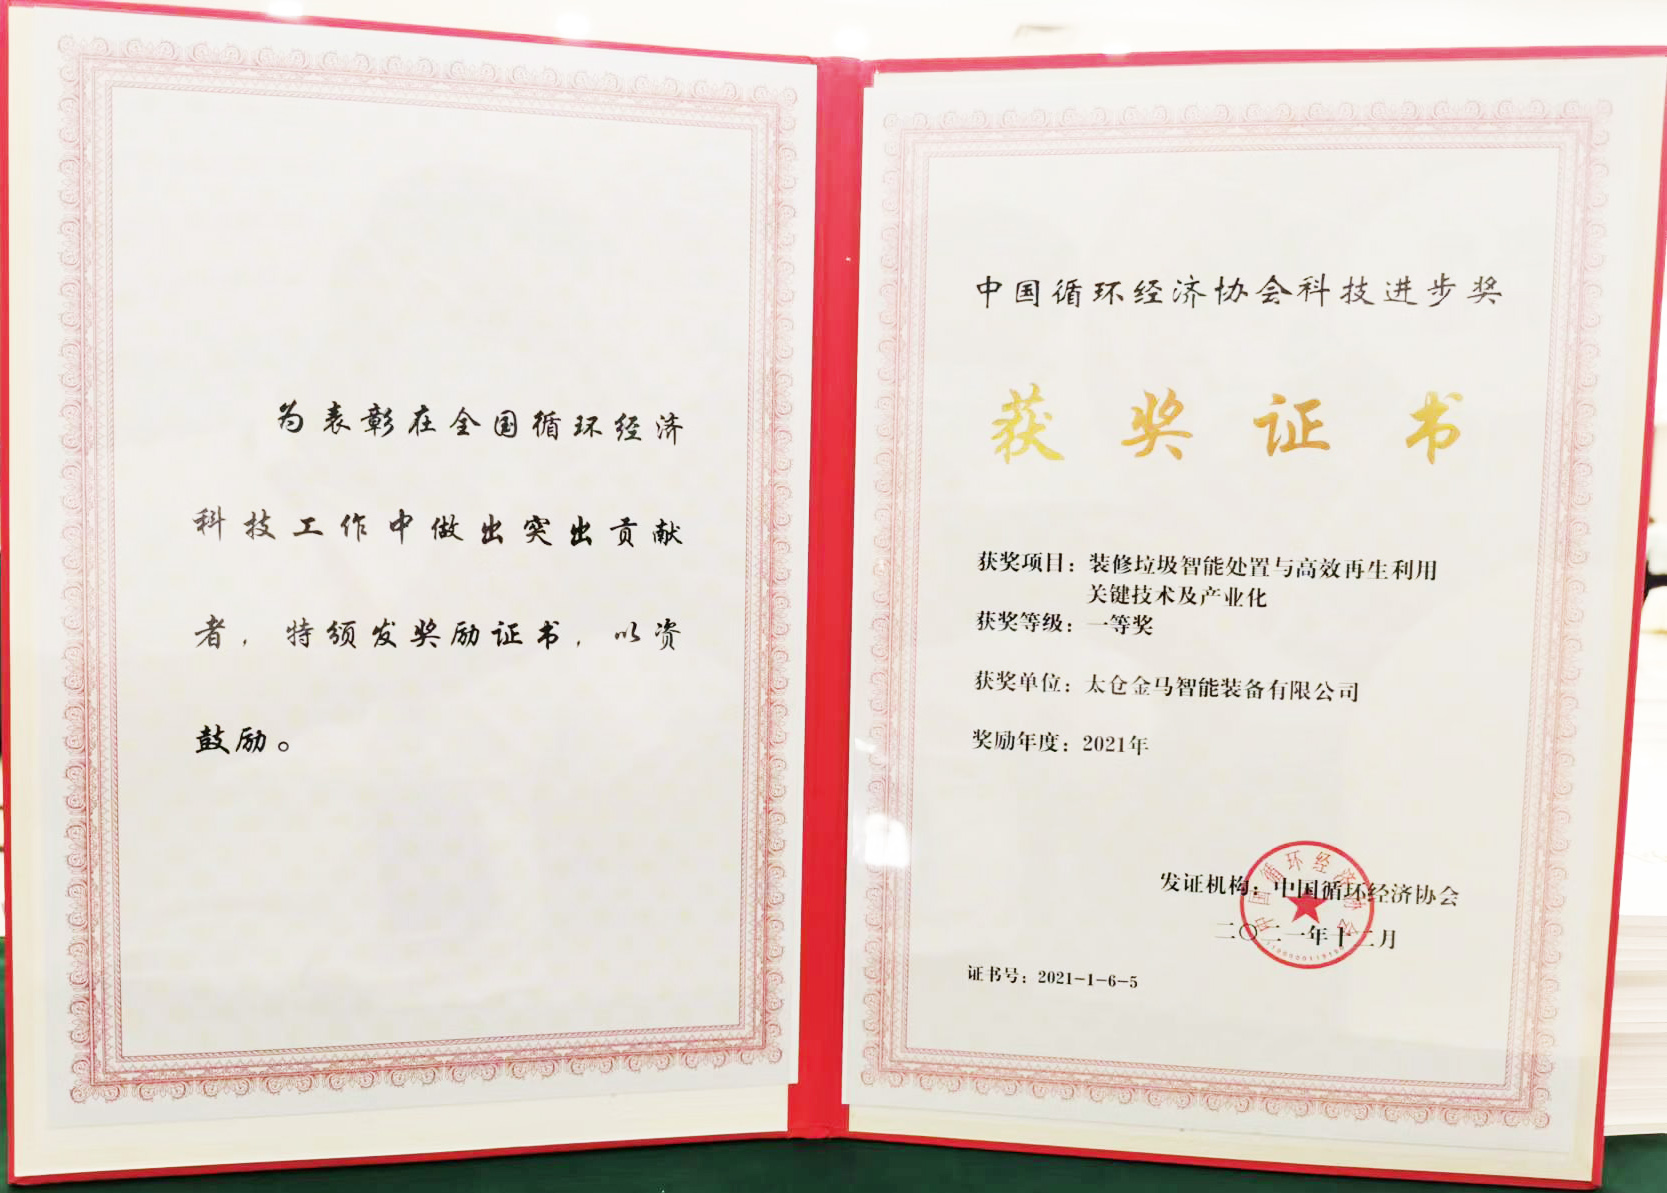 为表彰在全国循环经济
科技工作中做出突出贡献
者，特颁发奖励证书，以资
鼓励。
中国循环经济协会科技进步奖
获奖证书
获奖项目：装修垃圾智能处置与高效再生利用
关键技术及产业化
获奖等级：一等奖
获奖单位：太仓金马智能装备有限公司
奖励年度：2021年
发证机构：中国循环经济协会
二〇二一年十二月
中国循环经济协会
证书号：2021-1-6-5